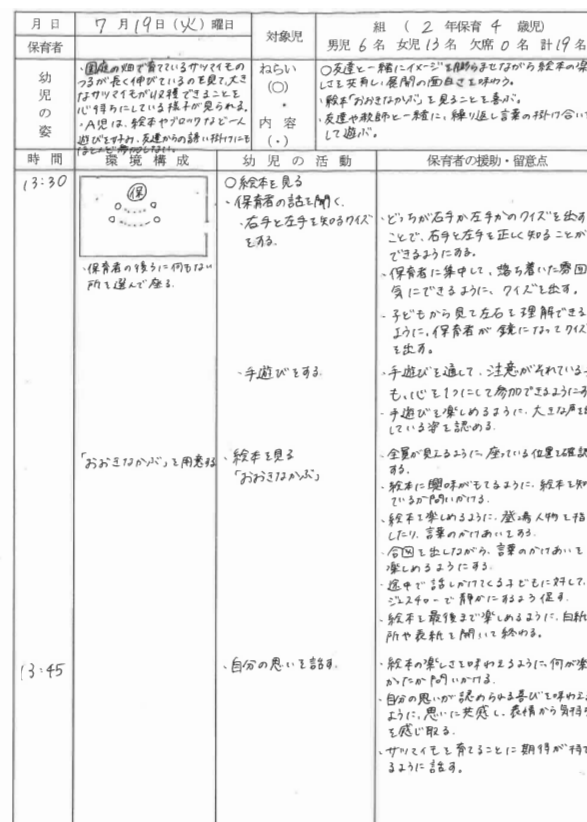 月 日
7 月 19 日 (火) 曜日
対象児
組 ( 2 年保育 4 歳児)
保育者
男児 6 名 女児 13 名 欠席 0 名 計 19 名
幼児の姿
・園庭の畑で育てているサツマイモの
つるが長く伸びているのを見て、大き
なサツマイモが収穫できることを
心待ちにしている様子が見られる。
・A児は、絵本やブロックなど一人
遊びを好み、友達からの誘い掛けにも
ほとんど参加しない。
ねらい
(○)
・
内 容
(・)
○友達と一緒にイメージを膨らませながら絵本の楽
しさを共有し、展開の面白さを味わう。
・絵本「おおきなかぶ」を見ることを喜ぶ。
・友達や教師と一緒に、繰り返し言葉の掛け合い
して遊ぶ。
時 間
環 境 構 成
幼 児 の 活 動
保育者の援助・留意点
13:30
保
・保育者の後ろに何もない
所を選んで座る。
「おおきなかぶ」を用意する
○絵本を見る
・保育者の話を聞く。
・右手と左手を知るクイズ
をする。
・手遊びをする。
・絵本を見る
「おおきなかぶ」
・どっちが右手か左手かのクイズを出す
ことで、右手と左手を正しく知ることが
できるようにする。
・保育者に集中して、落ち着いた雰囲
気にできるように、クイズを出す。
・子どもから見て左右を理解できる
ように、保育者が鏡になってクイズ
を出す。
・手遊びを通して、注意がそれている
も、心を1つにして参加できるようにす
・手遊びを楽しめるように、大きな声を
している姿を認める。
・全員が見えるように、座っている位置を確認
する。
・絵本に興味がもてるように、絵本を知
ているか問いかける。
・絵本を楽しめるように、登場人物を指
したり、言葉のかけあいをする。
・合図を出しながら、言葉のかけあいを
楽しめるようにする。
・途中で話しかけてくる子どもに対して、
ジェスチャーで静かにするよう促す。
・絵本を最後まで楽しめるように、白紙
所や表紙を開いて終わる。
13:45
・自分の思いを話す。
・絵本の楽しさを味わえるように、何が楽
かったか問いかける。
・自分の思いが認められる喜びを味わえ
ように、思いに共感し、表情から気持ち
を感じ取る。
・サツマイモを育てることに期待が持て
るように話す。